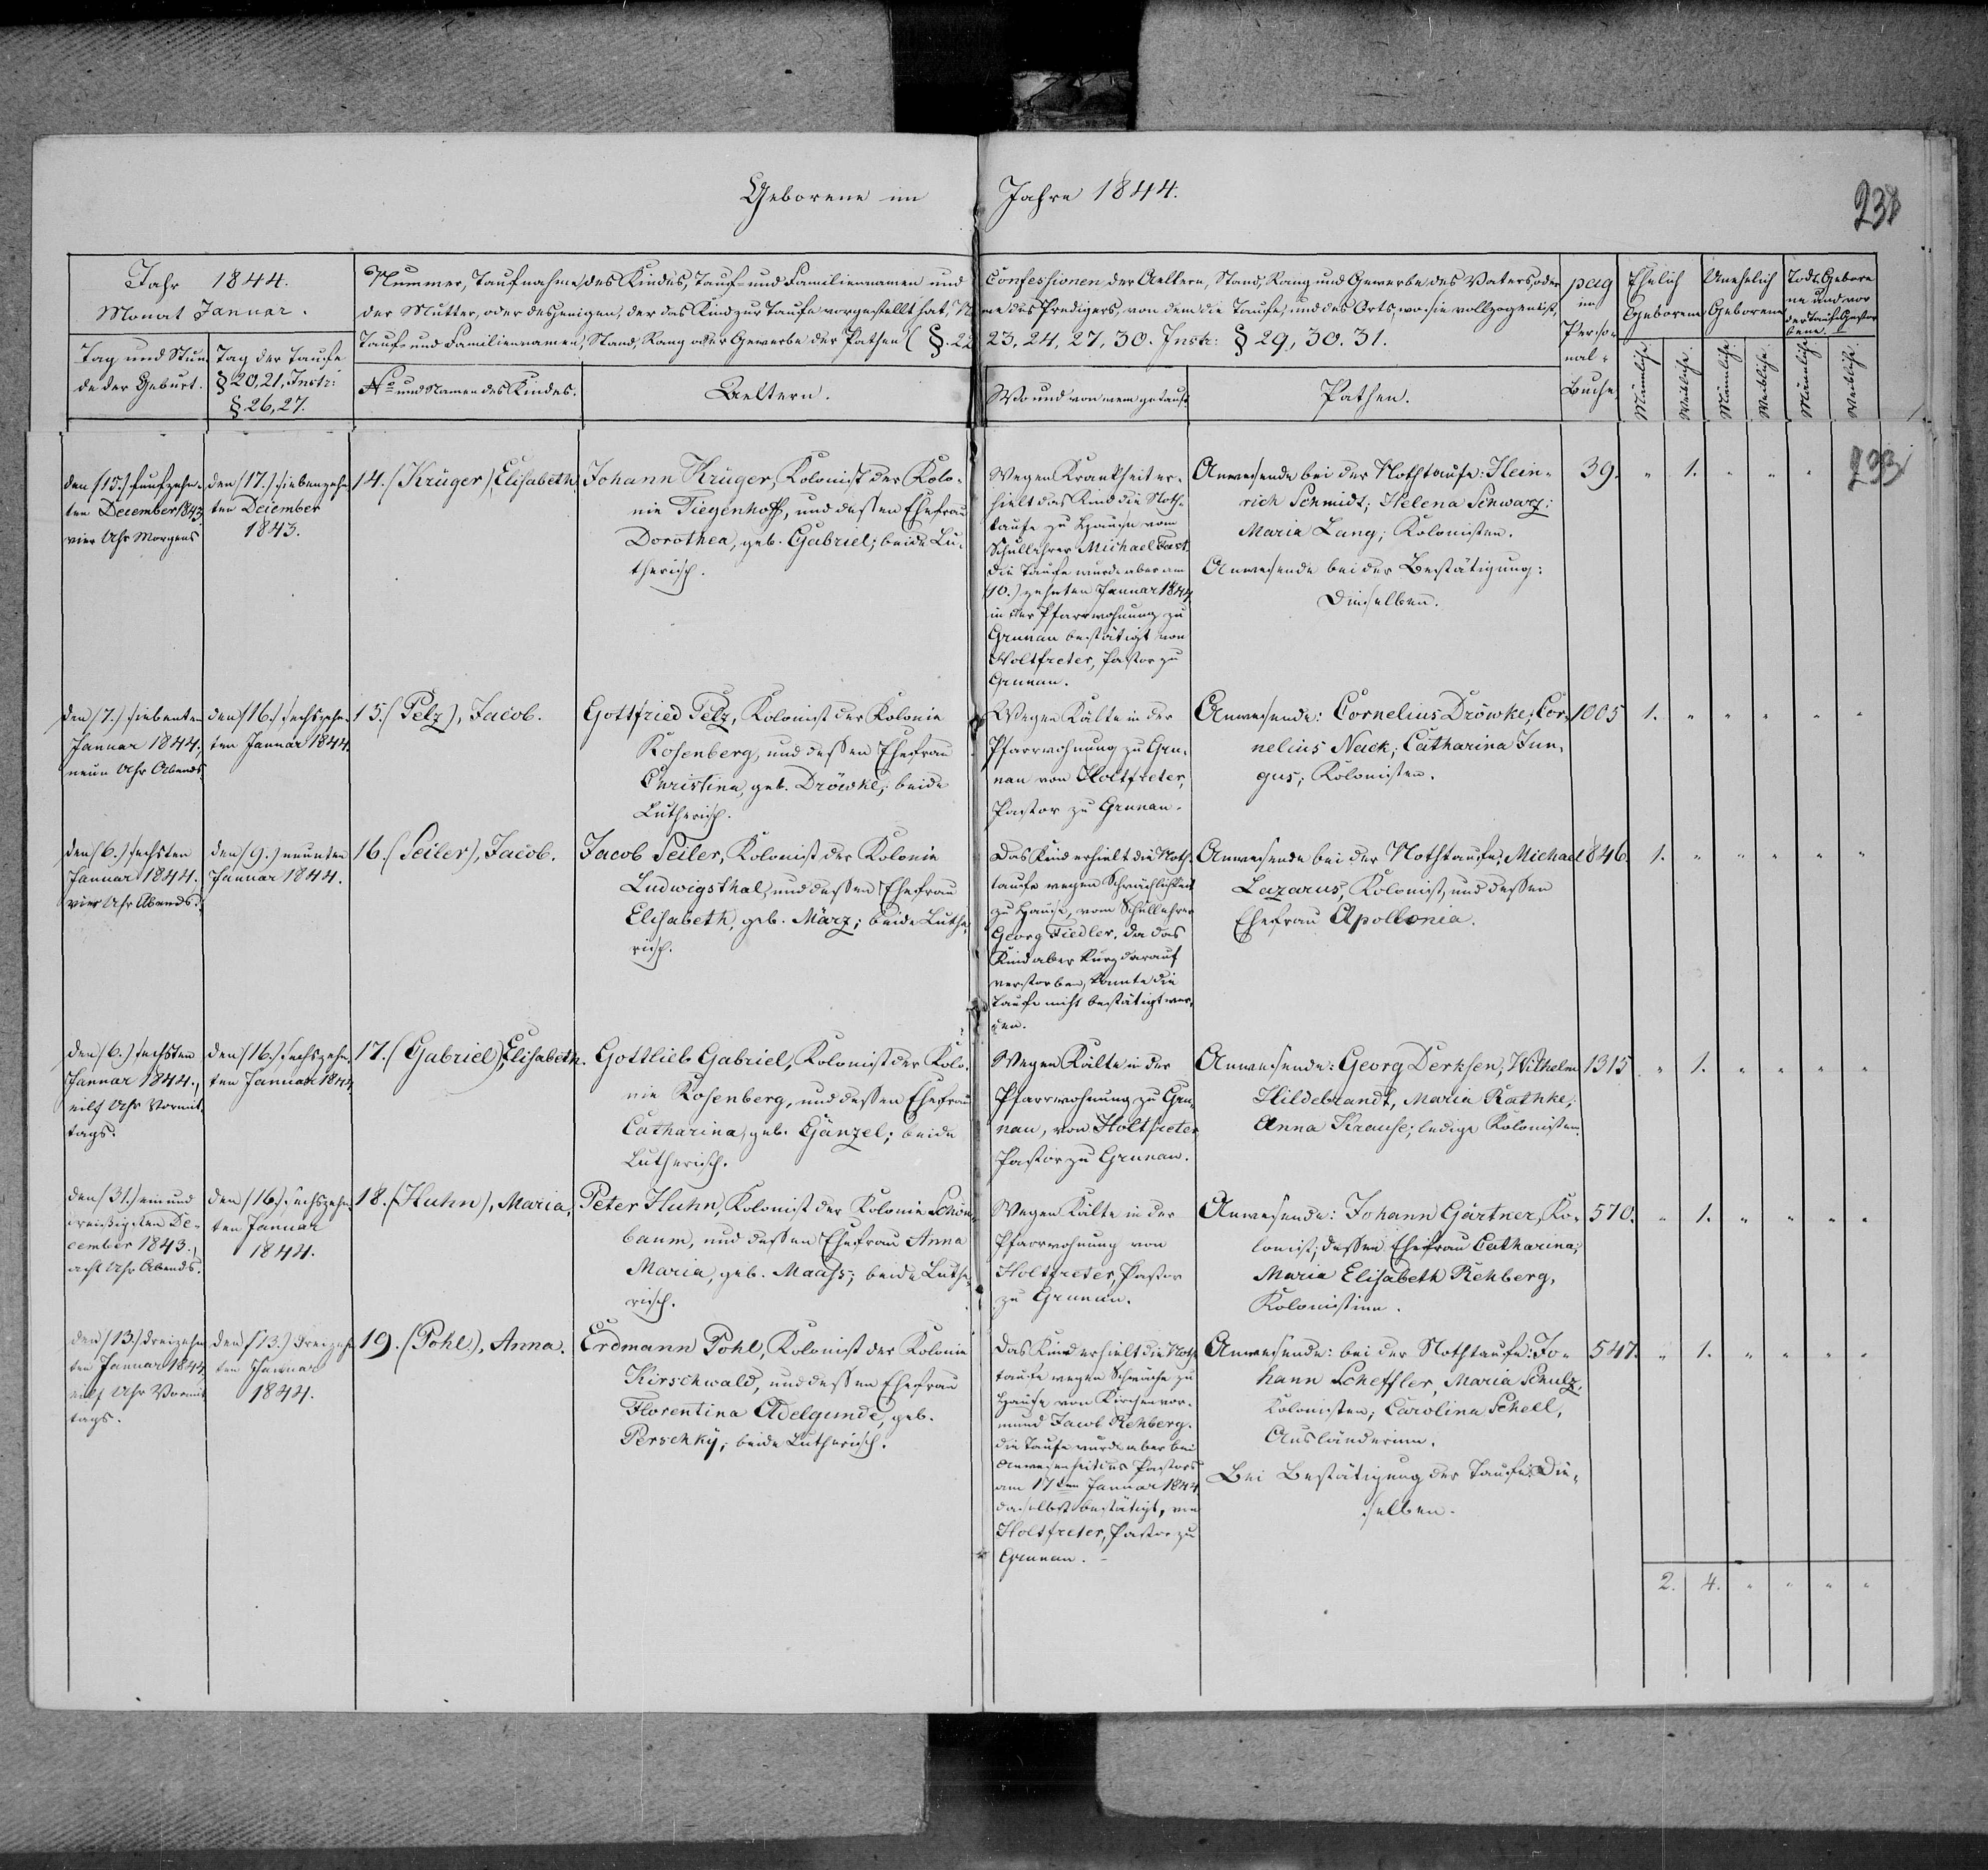 Geborene im Jahre 1844.
238
Jahr 1844.
Monat Januar.
Tag und Stun
de der Geburt.
Tag der Taufe
§ 20, 21, Instr:
§ 26, 27.
Nummer, Taufnahme des Kindes, Tauf- und Familiennamen und Confessionen der Aeltern, Stand, Rang und Gewerbe des Vaters, oder
der Mutter, oder desjenigen, der das Kind zur Taufe vorgestellt hat, Na me des Predigers, von dem die Taufe, und des Orts, wo sie vollzogen ist,
Tauf- und Familiennamen, Stand, Rang oder Gewerbe der Pathen (§. 22 23, 24, 27, 30. Instr: § 29, 30. 31.
No und Namen des Kindes.
Aeltern.
Wo und von wem getauft
Pathen.
pag
im
Perso-
nal-
Buche
Ehelich
Geborene
Unehelich
Geborene
Todt Gebore
ne und vor
der Taufe Gestor
bene.
Männliche.
Weibliche.
Männliche.
Weibliche.
Männliche.
Weibliche.
den (15.) funfzehn-
ten December 1843.
vier Uhr Morgens
den (17.) siebenzehn
ten December
1843.
14. (Krüger), Elisabeth.
Johann Krüger, Kolonist der Kolo-
nie Tiegenhoff, und dessen Ehefrau
Dorothea, geb. Gabriel; beide Lu-
therisch.
Wegen Krankheit er-
hielt das Kind die Noth-
taufe zu Hause vom
Schullehrer Michael Fast.
die Taufe wurde aber am
(10.) zehnten Januar 1844
in der Pfarrwohnung zu
Grunau bestätigt von
Holtfreter, Pastor zu
Grunau.
Anwesende bei der Nothtaufe: Hein-
rich Schmidt; Helena Schwarz;
Maria Lang; Kolonisten.
Anwesende bei der Bestätigung:
Dieselben.
39. " 1. " " "
233
den (7.) siebenten
Januar 1844.
neun Uhr Abends
den (16.) sechszehn
ten Januar 1844.
15. (Pelz), Jacob.
Gottfried Pelz, Kolonist der Kolonie
Rosenberg, und dessen Ehefrau
Christina, geb. Dröwke; beide
Lutherisch.
Wegen Kälte in der
Pfarrwohnung zu Gru-
nau von Holtfreter,
Pastor zu Grunau.
Anwesende: Cornelius Dröwke; Cor-
nelius Nack; Catharina Jun-
gus; Kolonisten.
1005 1. " " " " "
den (6.) sechsten
Januar 1844.
vier Uhr Abends.
den (9.) neunten
Januar 1844.
16. (Seiler), Jacob.
Jacob Seiler, Kolonist der Kolonie
Ludwigsthal, und dessen Ehefrau
Elisabeth, geb. März; beide Luthe-
risch.
Das Kind erhielt die Noth-
taufe wegen Schwächlichkeit
zu Hause, vom Schullehrer
Georg Fiedler, da das
Kind aber kurz darauf
verstorben, konnte die
Taufe nicht bestätigt wer-
den.
Anwesende bei der Nothtaufe; Michael
Lazarus, Kolonist, und dessen
Ehefrau Apollonia.
846. 1. " " " " "
den (6.) sechsten
Januar 1844.,
eilf Uhr Vormit-
tags.
den (16.) sechszehn
ten Januar 1844
17. (Gabriel), Elisabeth.
Gottlieb Gabriel, Kolonist der Kolo-
nie Rosenberg, und dessen Ehefrau
Catharina, geb. Gänzel; beide
Lutherisch.
Wegen Kälte in der
Pfarrwohnung zu Gru-
nau, von Holtfreter
Pastor zu Grunau.
Anwesende: Georg Derksen; Wilhelm
Hildebrandt, Maria Rathke;
Anna Krause; ledige Kolonisten.
1315 " 1. " " " "
den (31.) ein und
dreißigsten De-
cember 1843.,
acht Uhr Abends.
den (16.) sechszehn
ten Januar
1844.
18. (Huhn), Maria.
Peter Huhn, Kolonist der Kolonie Schön-
baum, und dessen Ehefrau Anna
Maria, geb. Maaß; beide Luthe-
risch.
Wegen Kälte in der
Pfarrwohnung von
Holtfreter, Pastor
zu Grunau.
Anwesende: Johann Gärtner, Ko-
lonist; dessen Ehefrau Catharina;
Maria Elisabeth Rehberg,
Kolonistinn.
570. " 1. " " " "
den (13.) dreizehn
ten Januar 1844
eilf Uhr Vormit
tags.
den (13.) dreizehn
ten Januar
1844.
19. (Pohl), Anna.
Erdmann Pohl, Kolonist der Kolonie
Kirschwald, und dessen Ehefrau
Florentina Adelgunde, geb.
Perschky; beide Lutherisch.
Das Kind erhielt die Noth
taufe wegen Schwäche zu
Hause von Kirchenvor-
mund Jacob Rehberg.
die Taufe wurde aber bei
Anwesenheit des Pastors
am 17ten Januar 1844
daselbst bestätigt, von
Holtfreter, Pastor zu
Grunau. -
Anwesende: bei der Nothtaufe: Jo-
hann Scheffler, Maria Schulz,
Kolonisten; Carolina Schell,
Ausländerinn.
Bei Bestätigung der Taufe: Die-
selben.
547. " 1. " " " "
2. 4. " " " "